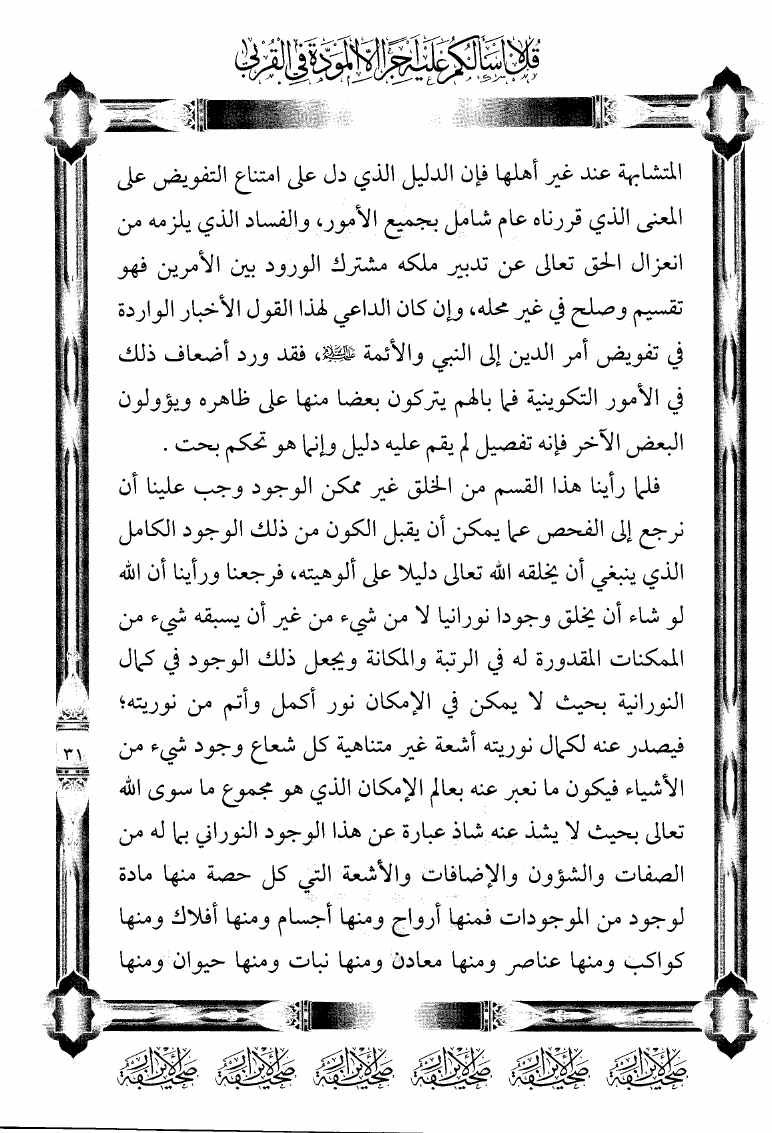 قل لا أسألكم عليه أجرا إلا المودة في القربى
المتشابهة عند غير أهلها فإن الدليل الذي دل على امتناع التفويض على
المعنى الذي قررناه عام شامل بجميع الأمور، والفساد الذي يلزمه من
انعزال الحق تعالى عن تدبير ملكه مشترك الورود بين الأمرين فهو
تقسيم وصلح في غير محله، وإن كان الداعي لهذا القول الأخبار الواردة
في تفويض أمر الدين إلى النبي والأئمة ، فقد ورد أضعاف ذلك
في الأمور التكوينية فما بالهم يتركون بعضا منها على ظاهره ويؤولون
البعض الآخر فإنه تفصيل لم يقم عليه دليل وإنما هو تحكم بحت .
فلما رأينا هذا القسم من الخلق غير ممكن الوجود وجب علينا أن
نرجع إلى الفحص عما يمكن أن يقبل الكون من ذلك الوجود الكامل
الذي ينبغي أن يخلقه الله تعالى دليلا على ألوهيته، فرجعنا ورأينا أن الله
لو شاء أن يخلق وجودا نورانيا لا من شيء من غير أن يسبقه شيء من
الممكنات المقدورة له في الرتبة والمكانة ويجعل ذلك الوجود في كمال
النورانية بحيث لا يمكن في الإمكان نور أكمل وأتم من نوريته؛
فيصدر عنه لكمال نوريته أشعة غير متناهية كل شعاع وجود شيء من
الأشياء فيكون ما نعبر عنه بعالم الإمكان الذي هو مجموع ما سوى الله
تعالى بحيث لا يشذ عنه شاذ عبارة عن هذا الوجود النوراني بما له من
الصفات والشؤون والإضافات والأشعة التي كل حصة منها مادة
لوجود من الموجودات فمنها أرواح ومنها أجسام ومنها أفلاك ومنها
كواكب ومنها عناصر ومنها معادن ومنها نبات ومنها حيوان ومنها
٣١